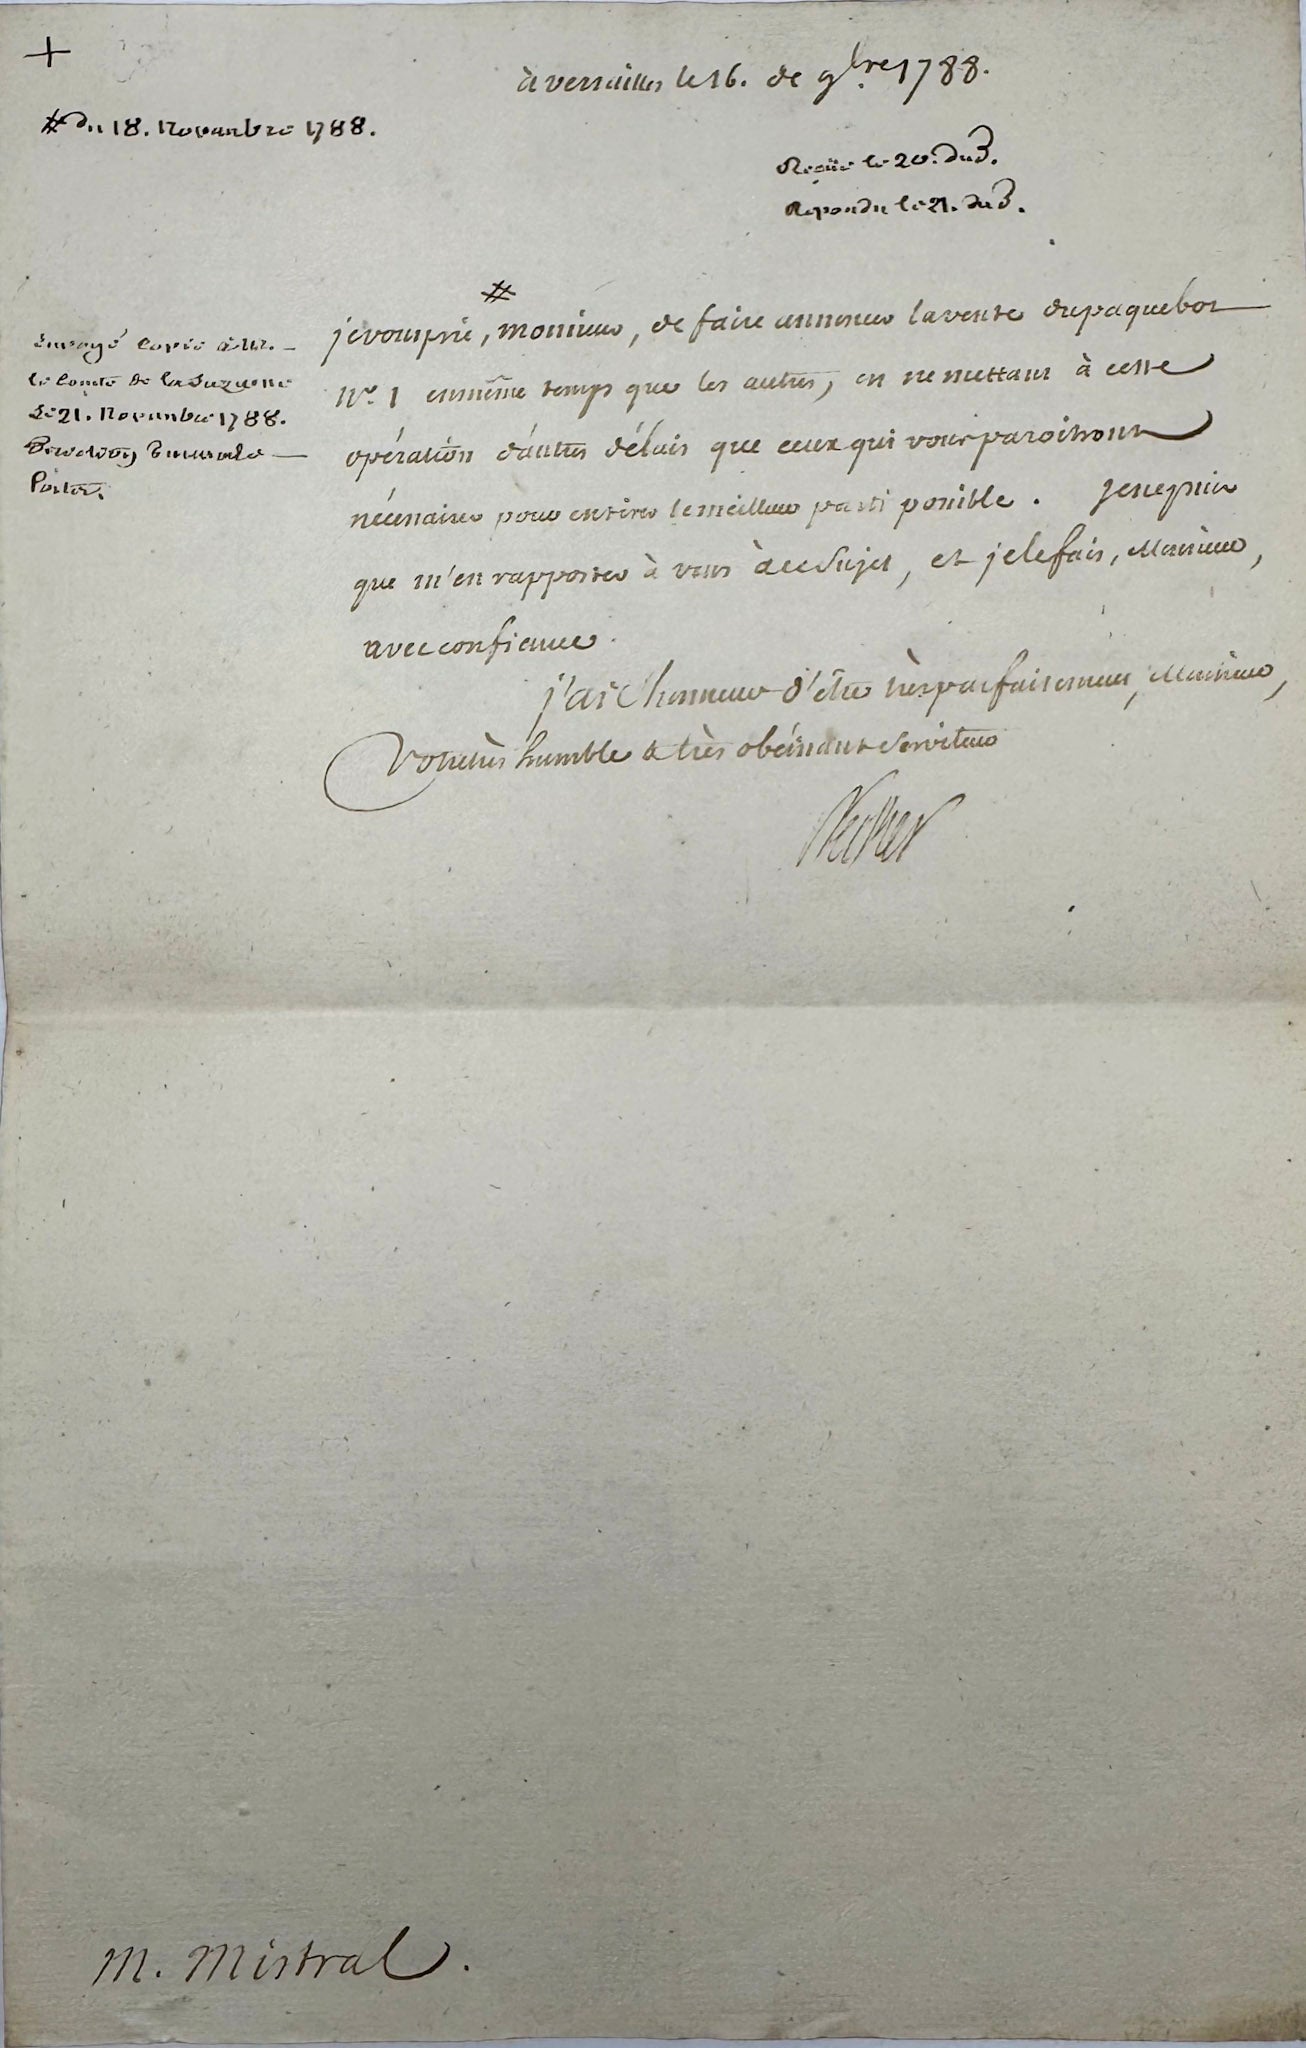 +
à versailles le 16. de 9bre. 1788.
# du 18. Novembre 1788.
Reçüe le 20. dud.
Repondu le 21. dud.
#
je vous prie, monsieur, de faire annoncer la vente du paquebot
envoyé copie à M.
le Comte de la Luzerne
Le 21. Novembre 1788.
No. 1 en même temps que les autres, en ne mettant à cette
opération d'autres délais que ceux qui vous paroitront
nécessaires pour en tirer le meilleur parti possible. je ne puis
que m'en rapporter à vous à ce sujet, et je le fais, Monsieur,
avec confiance.
j'ai l'honneur d'être très parfaitement, Monsieur,
Votre très humble & très obéissant Serviteur
Necker
M. Mistral.